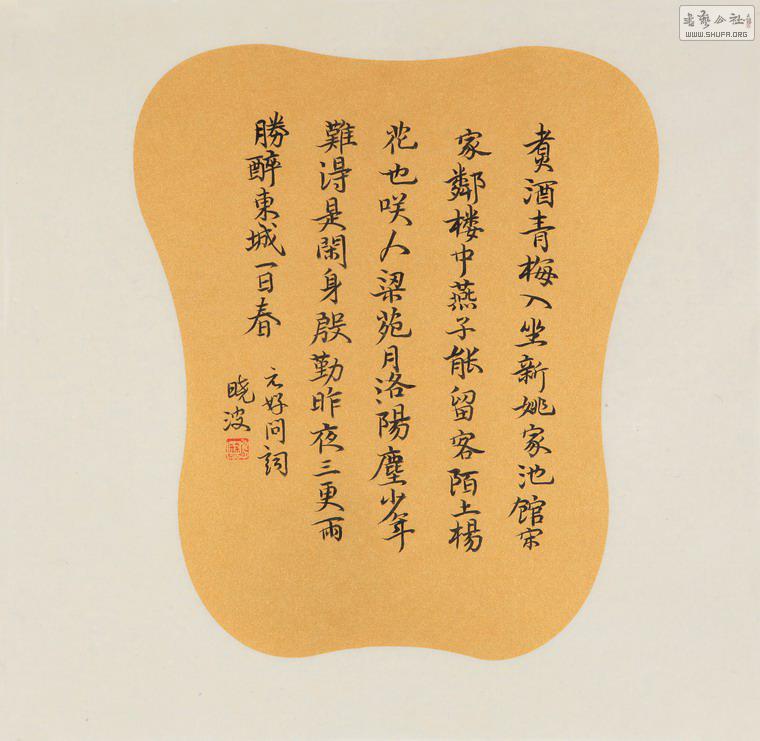 煮酒青梅入坐新姚家池館宋
家鄰楼中燕子能留客陌上楊
花也咲人梁苑月洛陽塵少年
難得是閑身殷勤昨夜三更雨
勝醉東城一日春
元好问詞
晓波
書藝公社
WWW.SHUFA.ORG